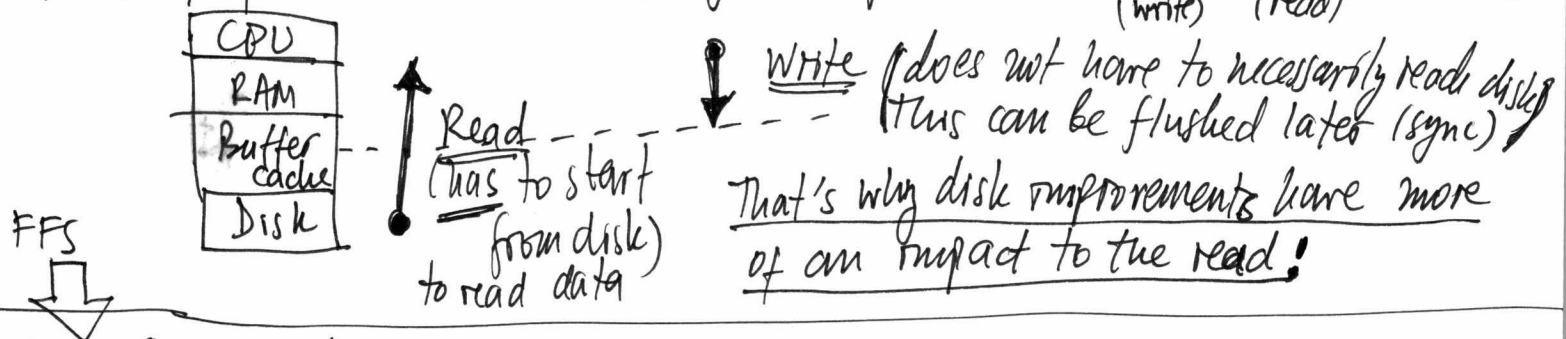 (write) (read)
CPU
RAM
Buffer
cache
Disk
FFS
Read
(has to start
from disk)
to read data
Write (does not have to necessarily reach disk)
This can be flushed later (sync)
That's why disk improvements have more
of an impact to the read!